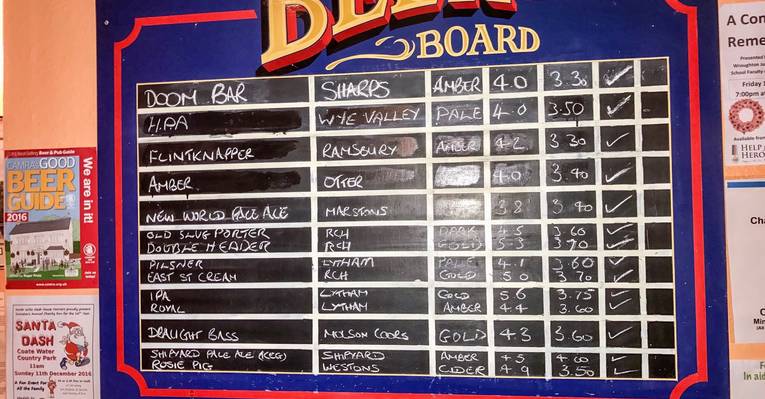 BEER
BOARD
DOOM BAR SHARPS AMBER 4.0 3.30 ✓
H.P.A WYE VALLEY PALE 4.0 3.50 ✓
FLINTKNAPPER RAMSBURY AMBER 4.2 3.30 ✓
AMBER OTTER 4.0 3.40 ✓
NEW WORLD PALE ALE MARSTONS 3.8 3.40 ✓
OLD SLUG PORTER RCH DARK 4.5 3.60 ✓
DOUBLE HEADER RCH GOLD 5.3 3.70 ✓
PILSNER LYTHAM PALE 4.1 3.60 ✓
EAST ST CREAM RCH GOLD 5.0 3.70 ✓
IPA LYTHAM GOLD 5.6 3.75 ✓
ROYAL LYTHAM AMBER 4.4 3.60 ✓
DRAUGHT BASS MOLSON COORS GOLD 4.3 3.60 ✓
SHIPYARD PALE ALE (KEG) SHIPYARD AMBER 4.5 4.00 ✓
ROSIE PIG WESTONS CIDER 4.9 3.50 ✓
Best Selling Beer & Pub Guide
CAMRA'S GOOD
BEER
GUIDE
2016
We are in!
www.camra.org.uk
SANTA
DASH
Coate Water
Country Park
11am
Sunday 11th December 2016
A Fun Event For
All the Family
A Con
Reme
Presented
Wroughton
School Faculty
Friday 1
7:00pm at
Available from
HELP
HERO
Cha
In aid